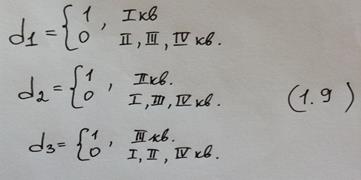 d1 = { 1 , I кв
0 II, III, IV кв.
d2 = { 1 , II кв.
0 I, III, IV кв. (1.9)
d3 = { 1 , III кв.
0 I, II, IV кв.